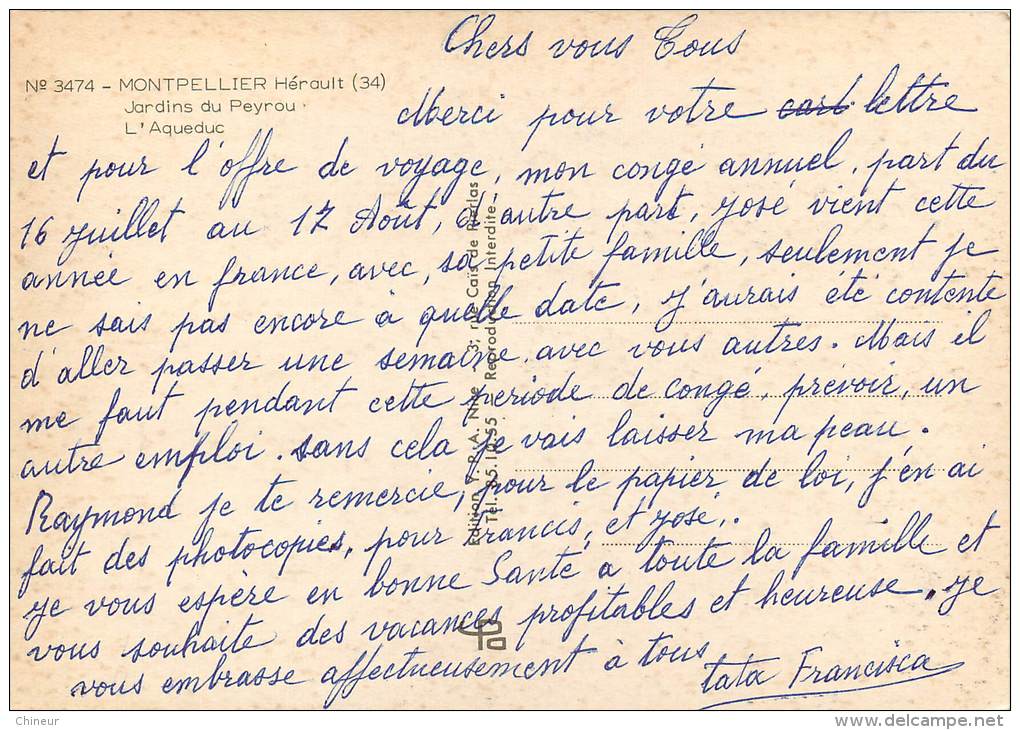 Chers vous Tous
Nº 3474 - MONTPELLIER Hérault (34)
Jardins du Peyrou
L'Aqueduc
Merci pour votre cart lettre
et pour l'offre de voyage, mon congé annuel, part du
16 juillet au 17 Août, d'autre part, José vient cette
année en france, avec, sa petite famille, seulement je
ne sais pas encore à quelle date, j'aurais été contente
d'aller passer une semaine avec vous autres. Mais il
me faut pendant cette période de congé, prévoir, un
autre emploi. sans cela je vais laisser ma peau.
Raymond je te remercie, pour le papier de loi, j'en ai
fait des photocopies, pour francis, et José,.
Je vous espère en bonne Santé a toute la famille et
vous souhaite des vacances profitables et heureuse. Je
vous embrasse affectueusement à tous
tata Francisca
Edition V.P.A. Nice 3, rue Caïs de Pierlas
Tél. 85.10.55 Reproduction Interdite
Chineur
http://www.delcampe.net